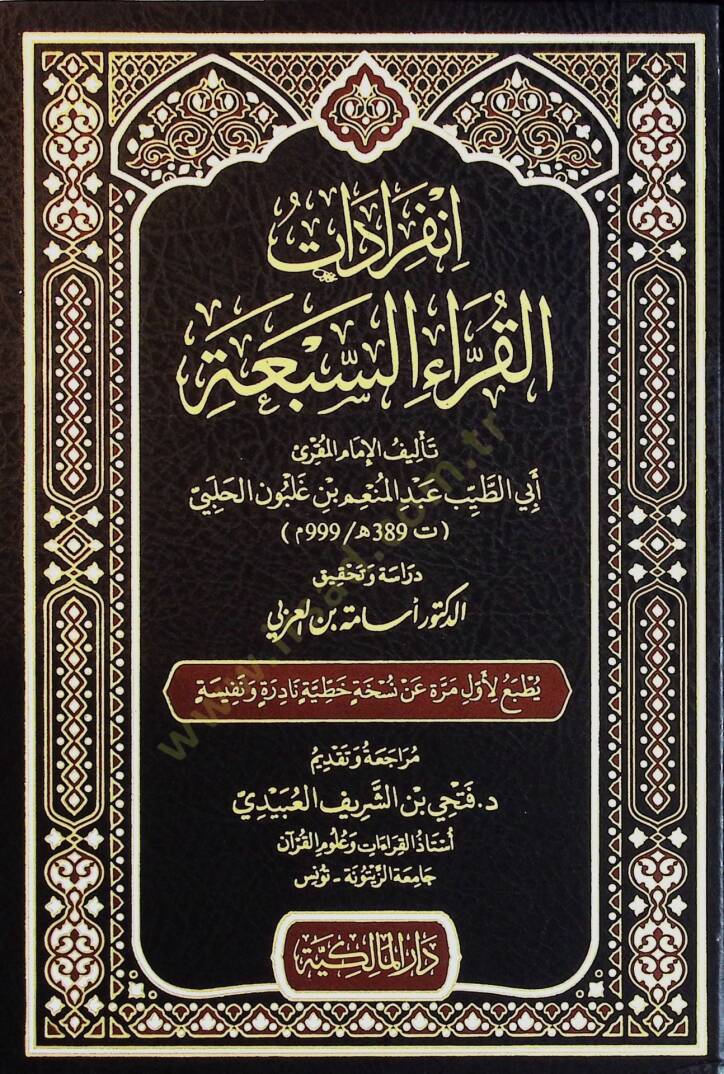 اِنْفِرَادَاتُ
القُرَّاءِ السَّبْعَةِ
تَأْلِيفُ الإِمَامِ المُقْرِئ
أَبِي الطَّيِّبِ عَبْدِ المُنْعِمِ بْنِ غَلْبُون الحَلَبِيّ
(ت 389هـ/999م)
دِرَاسَة وَتَحْقِيق
الدكتور أسامة بن العربي
يُطْبَعُ لِأَوَّلِ مَرَّة عَنْ نُسْخَةٍ خَطِّيَّةٍ نَادِرَةٍ وَنَفِيسَةٍ
مُرَاجَعَةُ وَتَقْدِيمُ
د. فَتْحِي بْن الشَّرِيف العُبَيْدِيّ
أُسْتَاذُ القِرَاءَاتِ وَعُلُومِ القُرْآن
جَامِعَة الزَّيْتُونَة - تُونِس
دَارُ المَالِكِيَّة